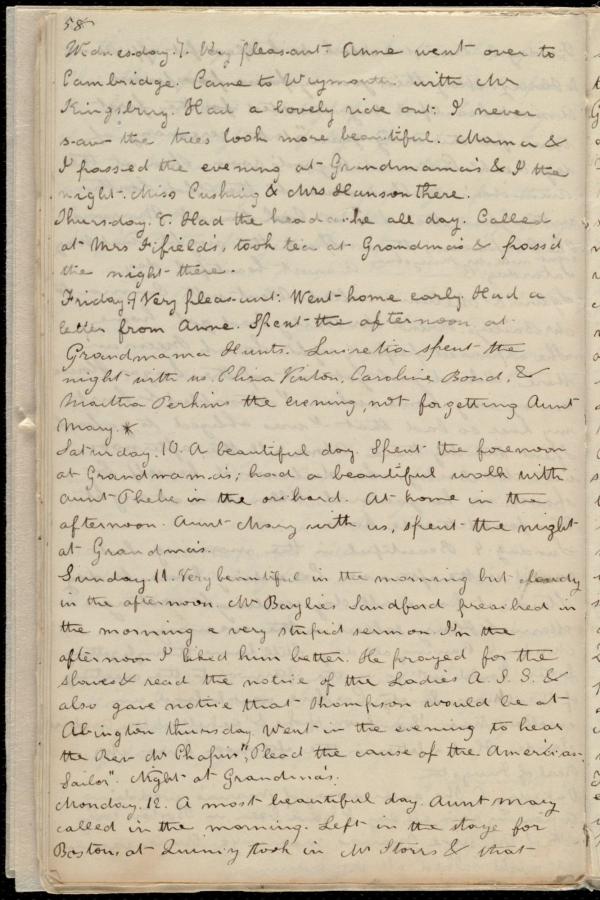 58
Wednesday. 7. Very pleasant. Anne went over to
Cambridge. Came to Weymouth with Mr
Kingsbury. Had a lovely ride out; I never
saw the trees look more beautiful. Mama &
I passed the evening at Grandmama's & I the
night. Miss Cushing & Mrs Hanson there.
Thursday. 8. Had the headache all day. Called
at Mrs Fifield's, took tea at Grandma's & pass'd
the night there.
Friday 9 Very pleasant. Went home early. Had a
letter from Anne. Spent the afternoon at
Grandmama Hunts. Lucretia spent the
night with us. Eliza Vinton, Caroline Bond, &
Martha Perkins the evening, not forgetting Aunt
Mary. *
Saturday. 10. A beautiful day. Spent the forenoon
at Grandmama's; had a beautiful walk with
aunt Phebe in the orchard. At home in the
afternoon. Aunt Mary with us, spent the night
at Grandma's.
Sunday. 11. Very beautiful in the morning but cloudy
in the afternoon. Mr Baylies Sandford preached in
the morning a very stupid sermon. I'n the
afternoon I liked him better. He prayed for the
slaves & read the notice of the Ladies A. S. S. &
also gave notice that Thompson would be at
Abington thursday. Went in the evening to hear
the Rev Mr Chapin", "Plead the cause of the American
Sailor". Night at Grandma's.
Monday. 12. A most beautiful day. Aunt Mary
called in the morning. Left in the stage for
Boston, at Quincy took in Mr Storrs & that